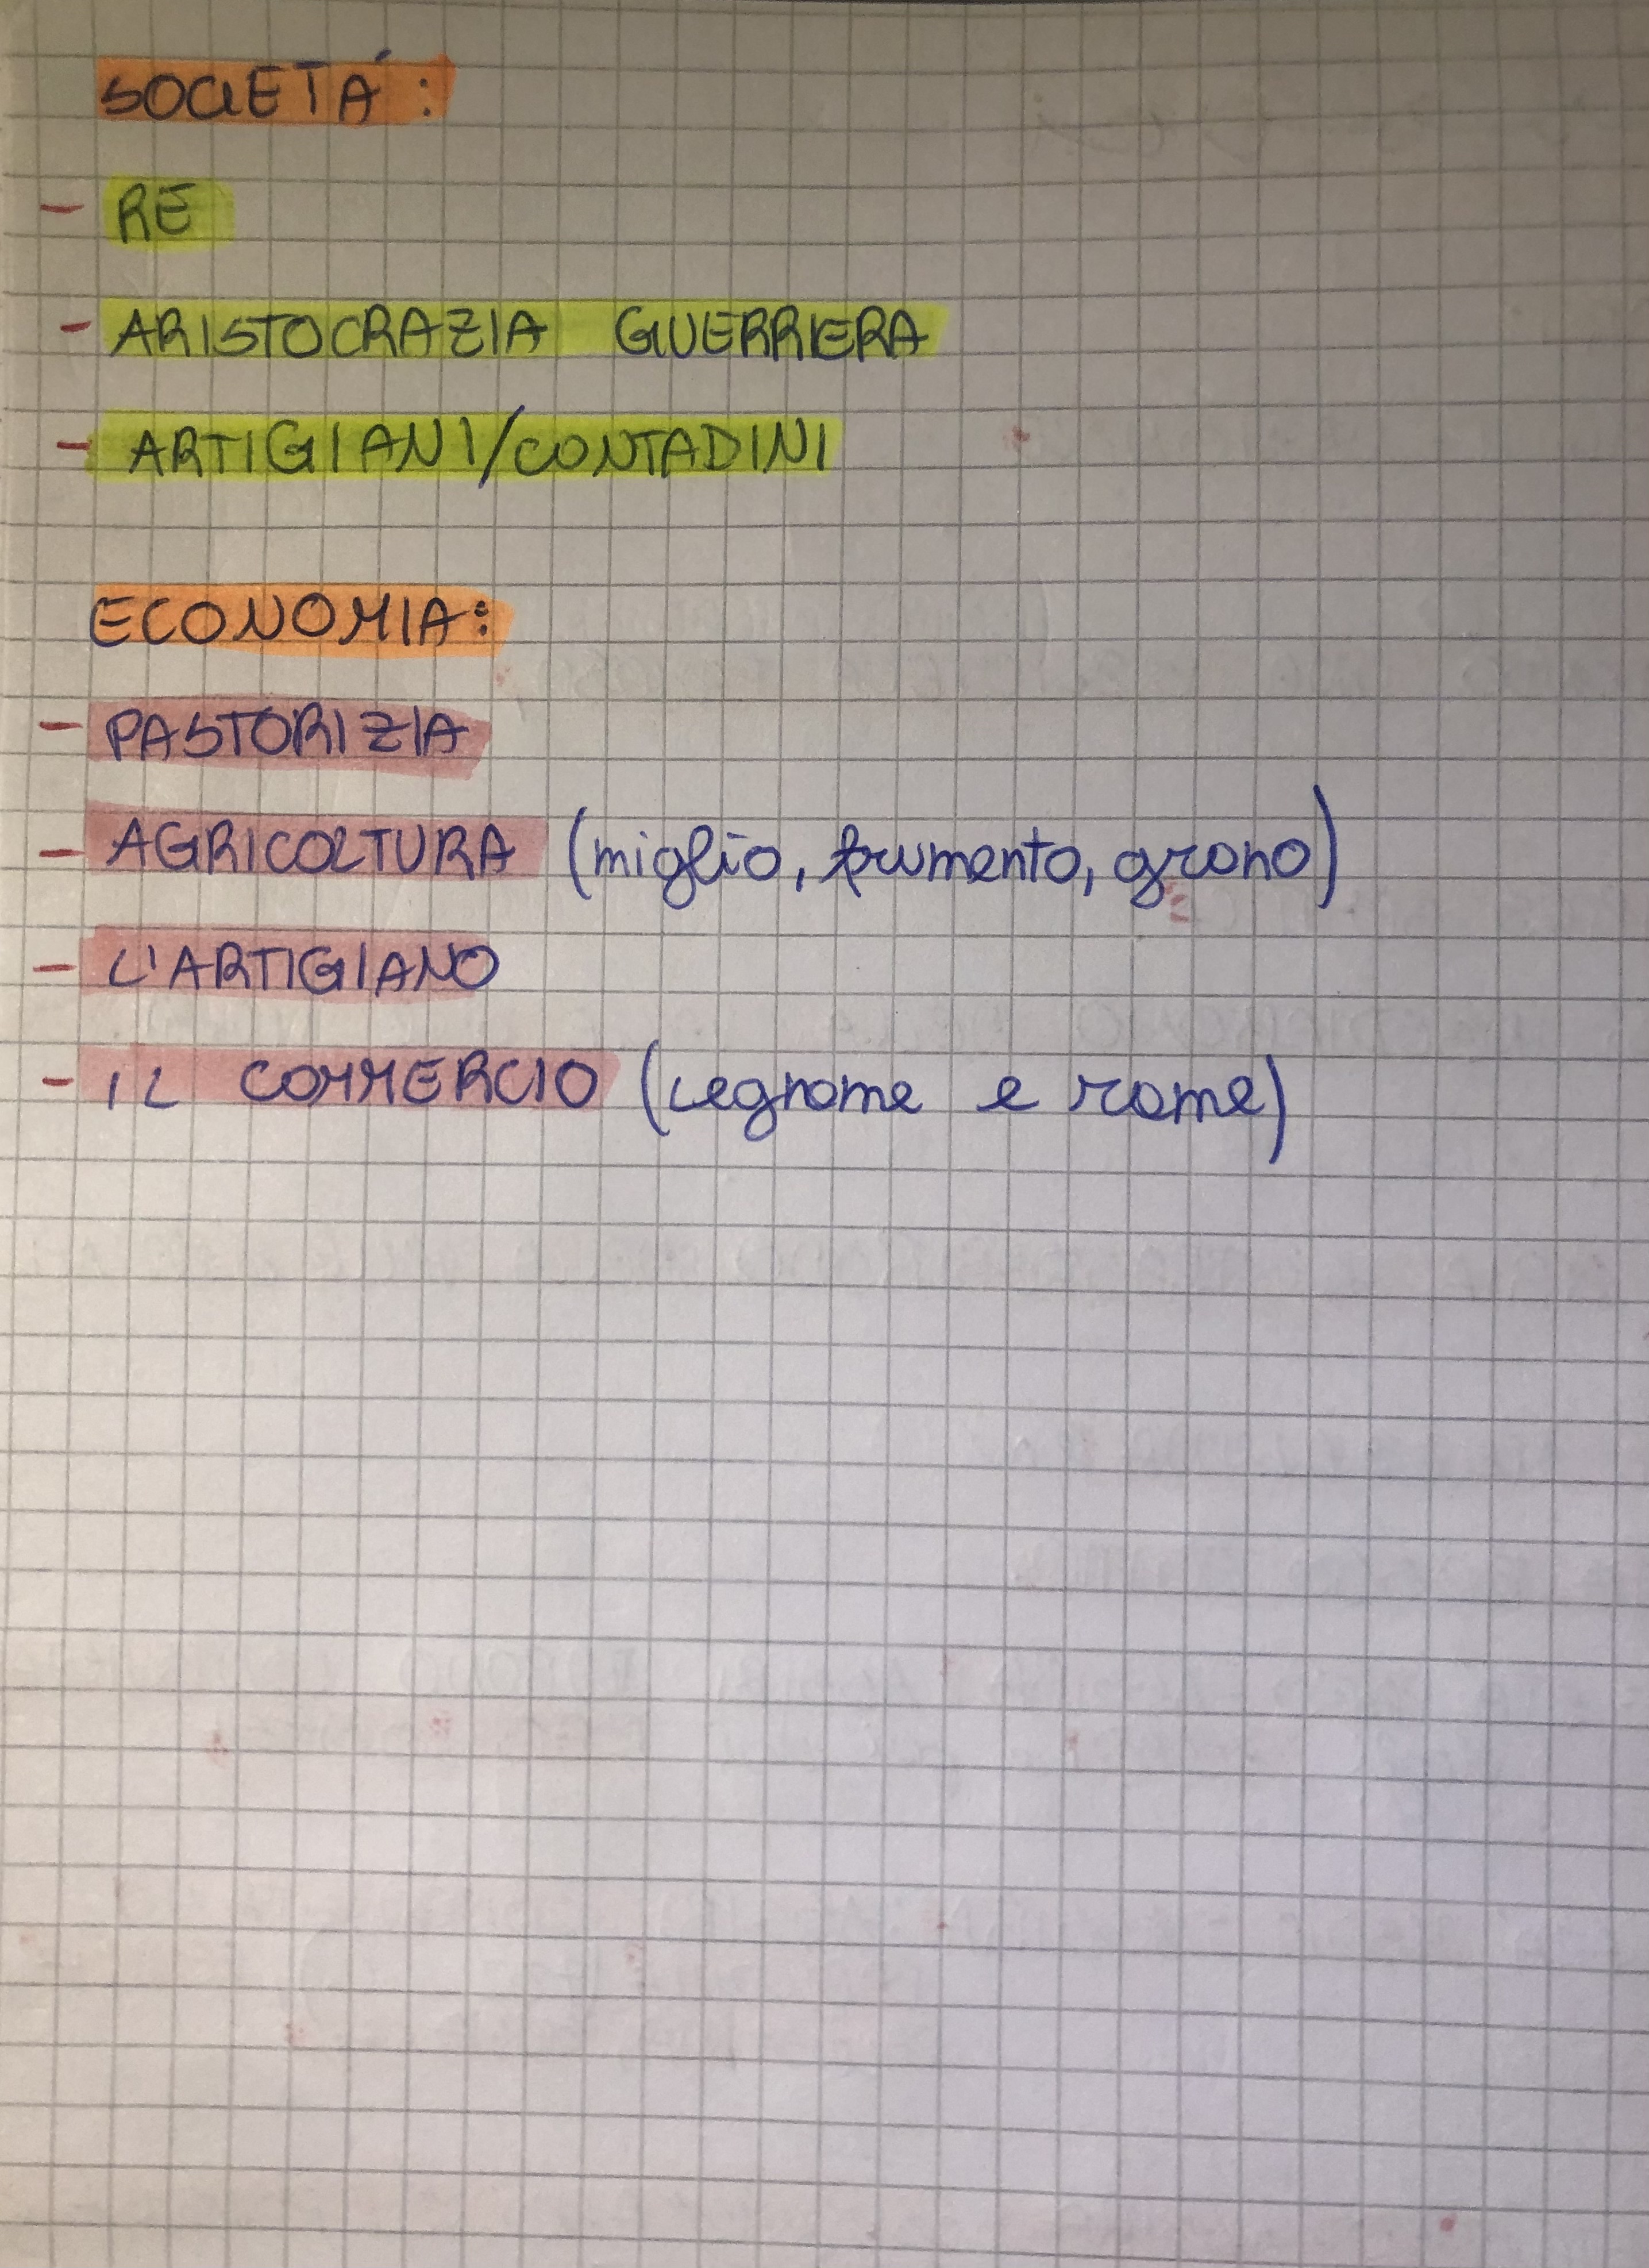 SOCIETÁ:
- RE
- ARISTOCRAZIA GUERRIERA
- ARTIGIANI/CONTADINI
ECONOMIA:
- PASTORIZIA
- AGRICOLTURA (miglio, frumento, grano)
- L'ARTIGIANO
- IL COMMERCIO (legname e rame)